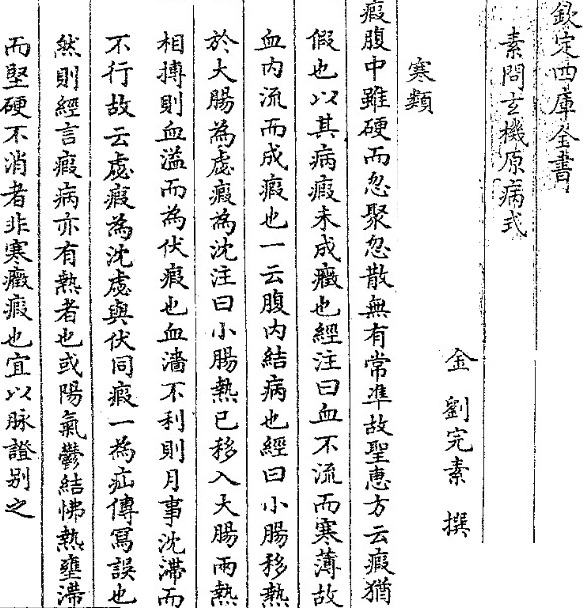 欽定四庫全書
素問玄機原病式
金 劉完素 撰
寒類
瘕腹中雖硬而忽聚忽散無有常準故聖惠方云瘕猶
假也以其病瘕未成癥也經注曰血不流而寒薄故
血内流而成瘕也一云腹内結病也經曰小腸移熱
於大腸為虙瘕為沈注曰小腸熱已移入大腸兩熱
相搏則血溢而為伏瘕也血濇不利則月事沈滞而
不行故云虙瘕為沈虙與伏同瘕一為疝傳寫誤也
然則經言瘕病亦有熱者也或陽氣鬱結怫熱壅滯
而堅硬不消者非寒癥瘕也宜以脉證别之